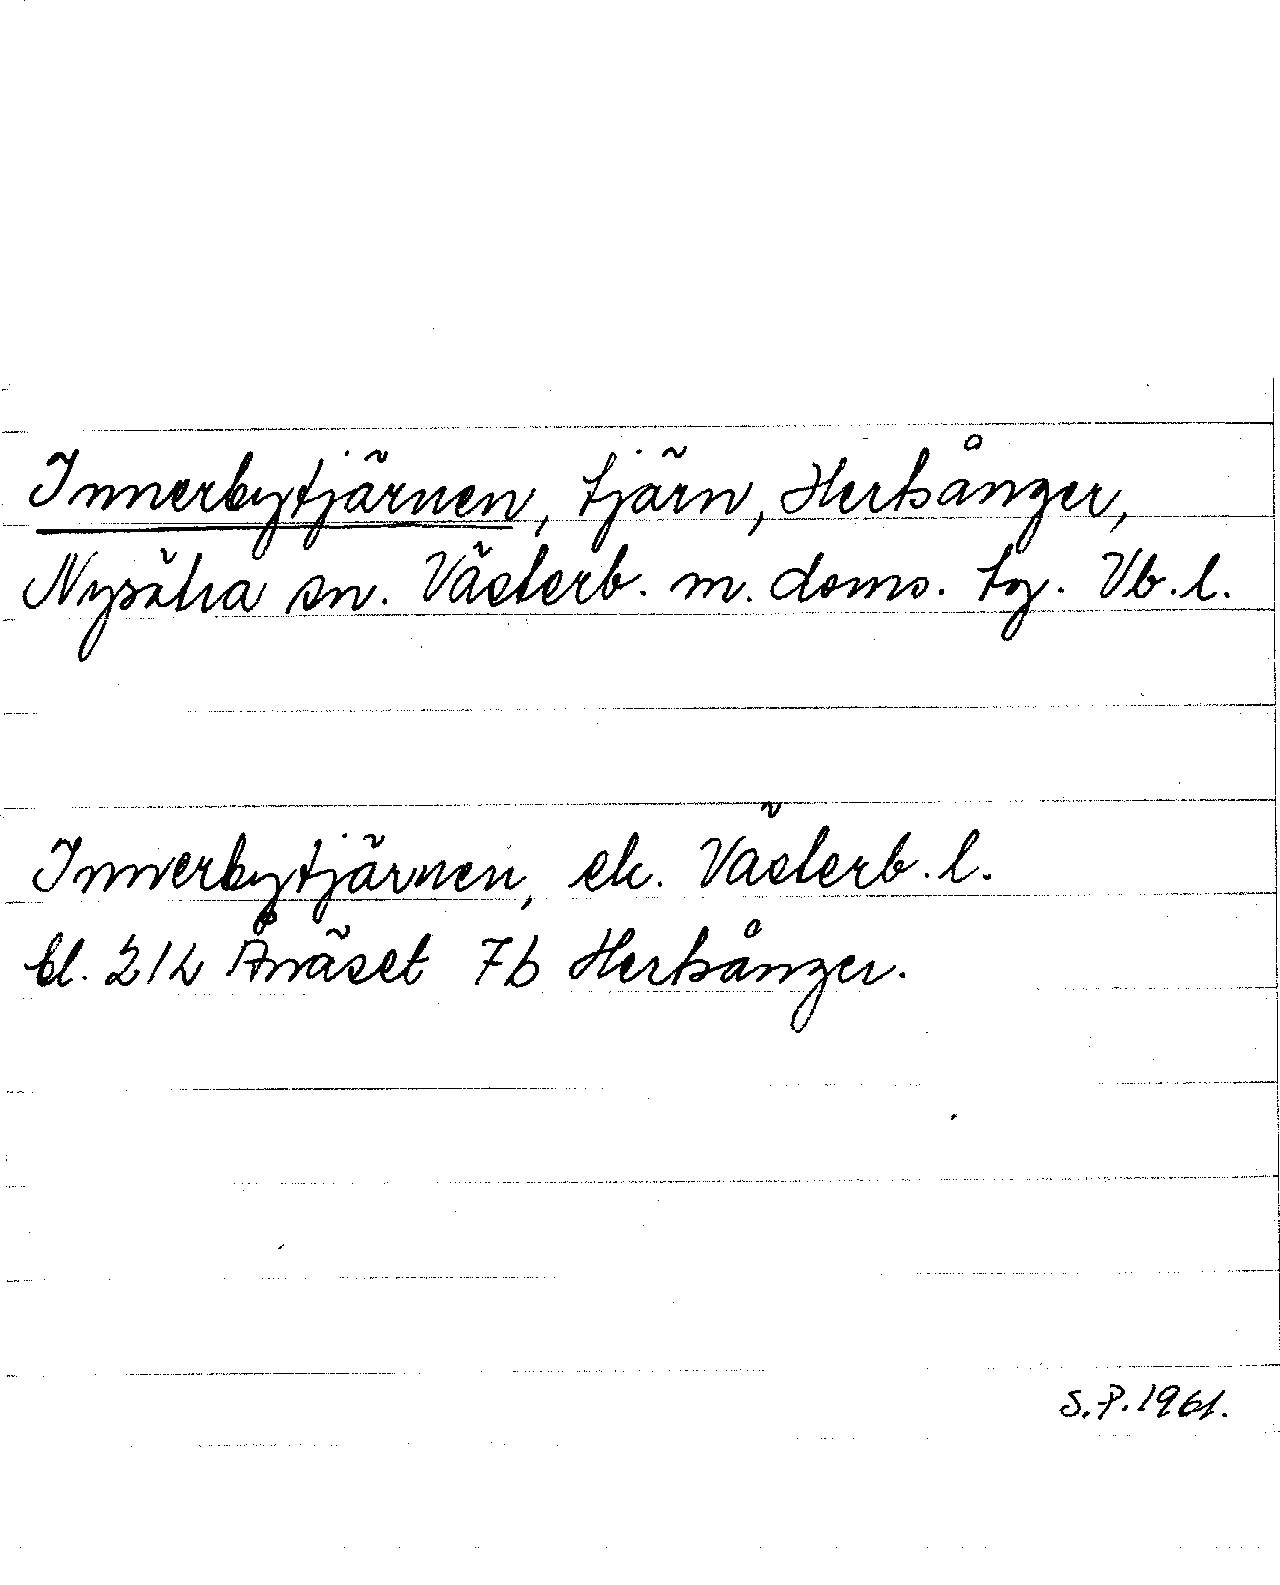 Innerbytjärnen, tjärn, Hertsånger,
Nysätra sn. Västerb. m. doms. tg. Vb.l.
Innerbytjärnen, ek. Västerb.l.
bl. 21L Ånäset 7b Hertsånger.
S.P.1961.